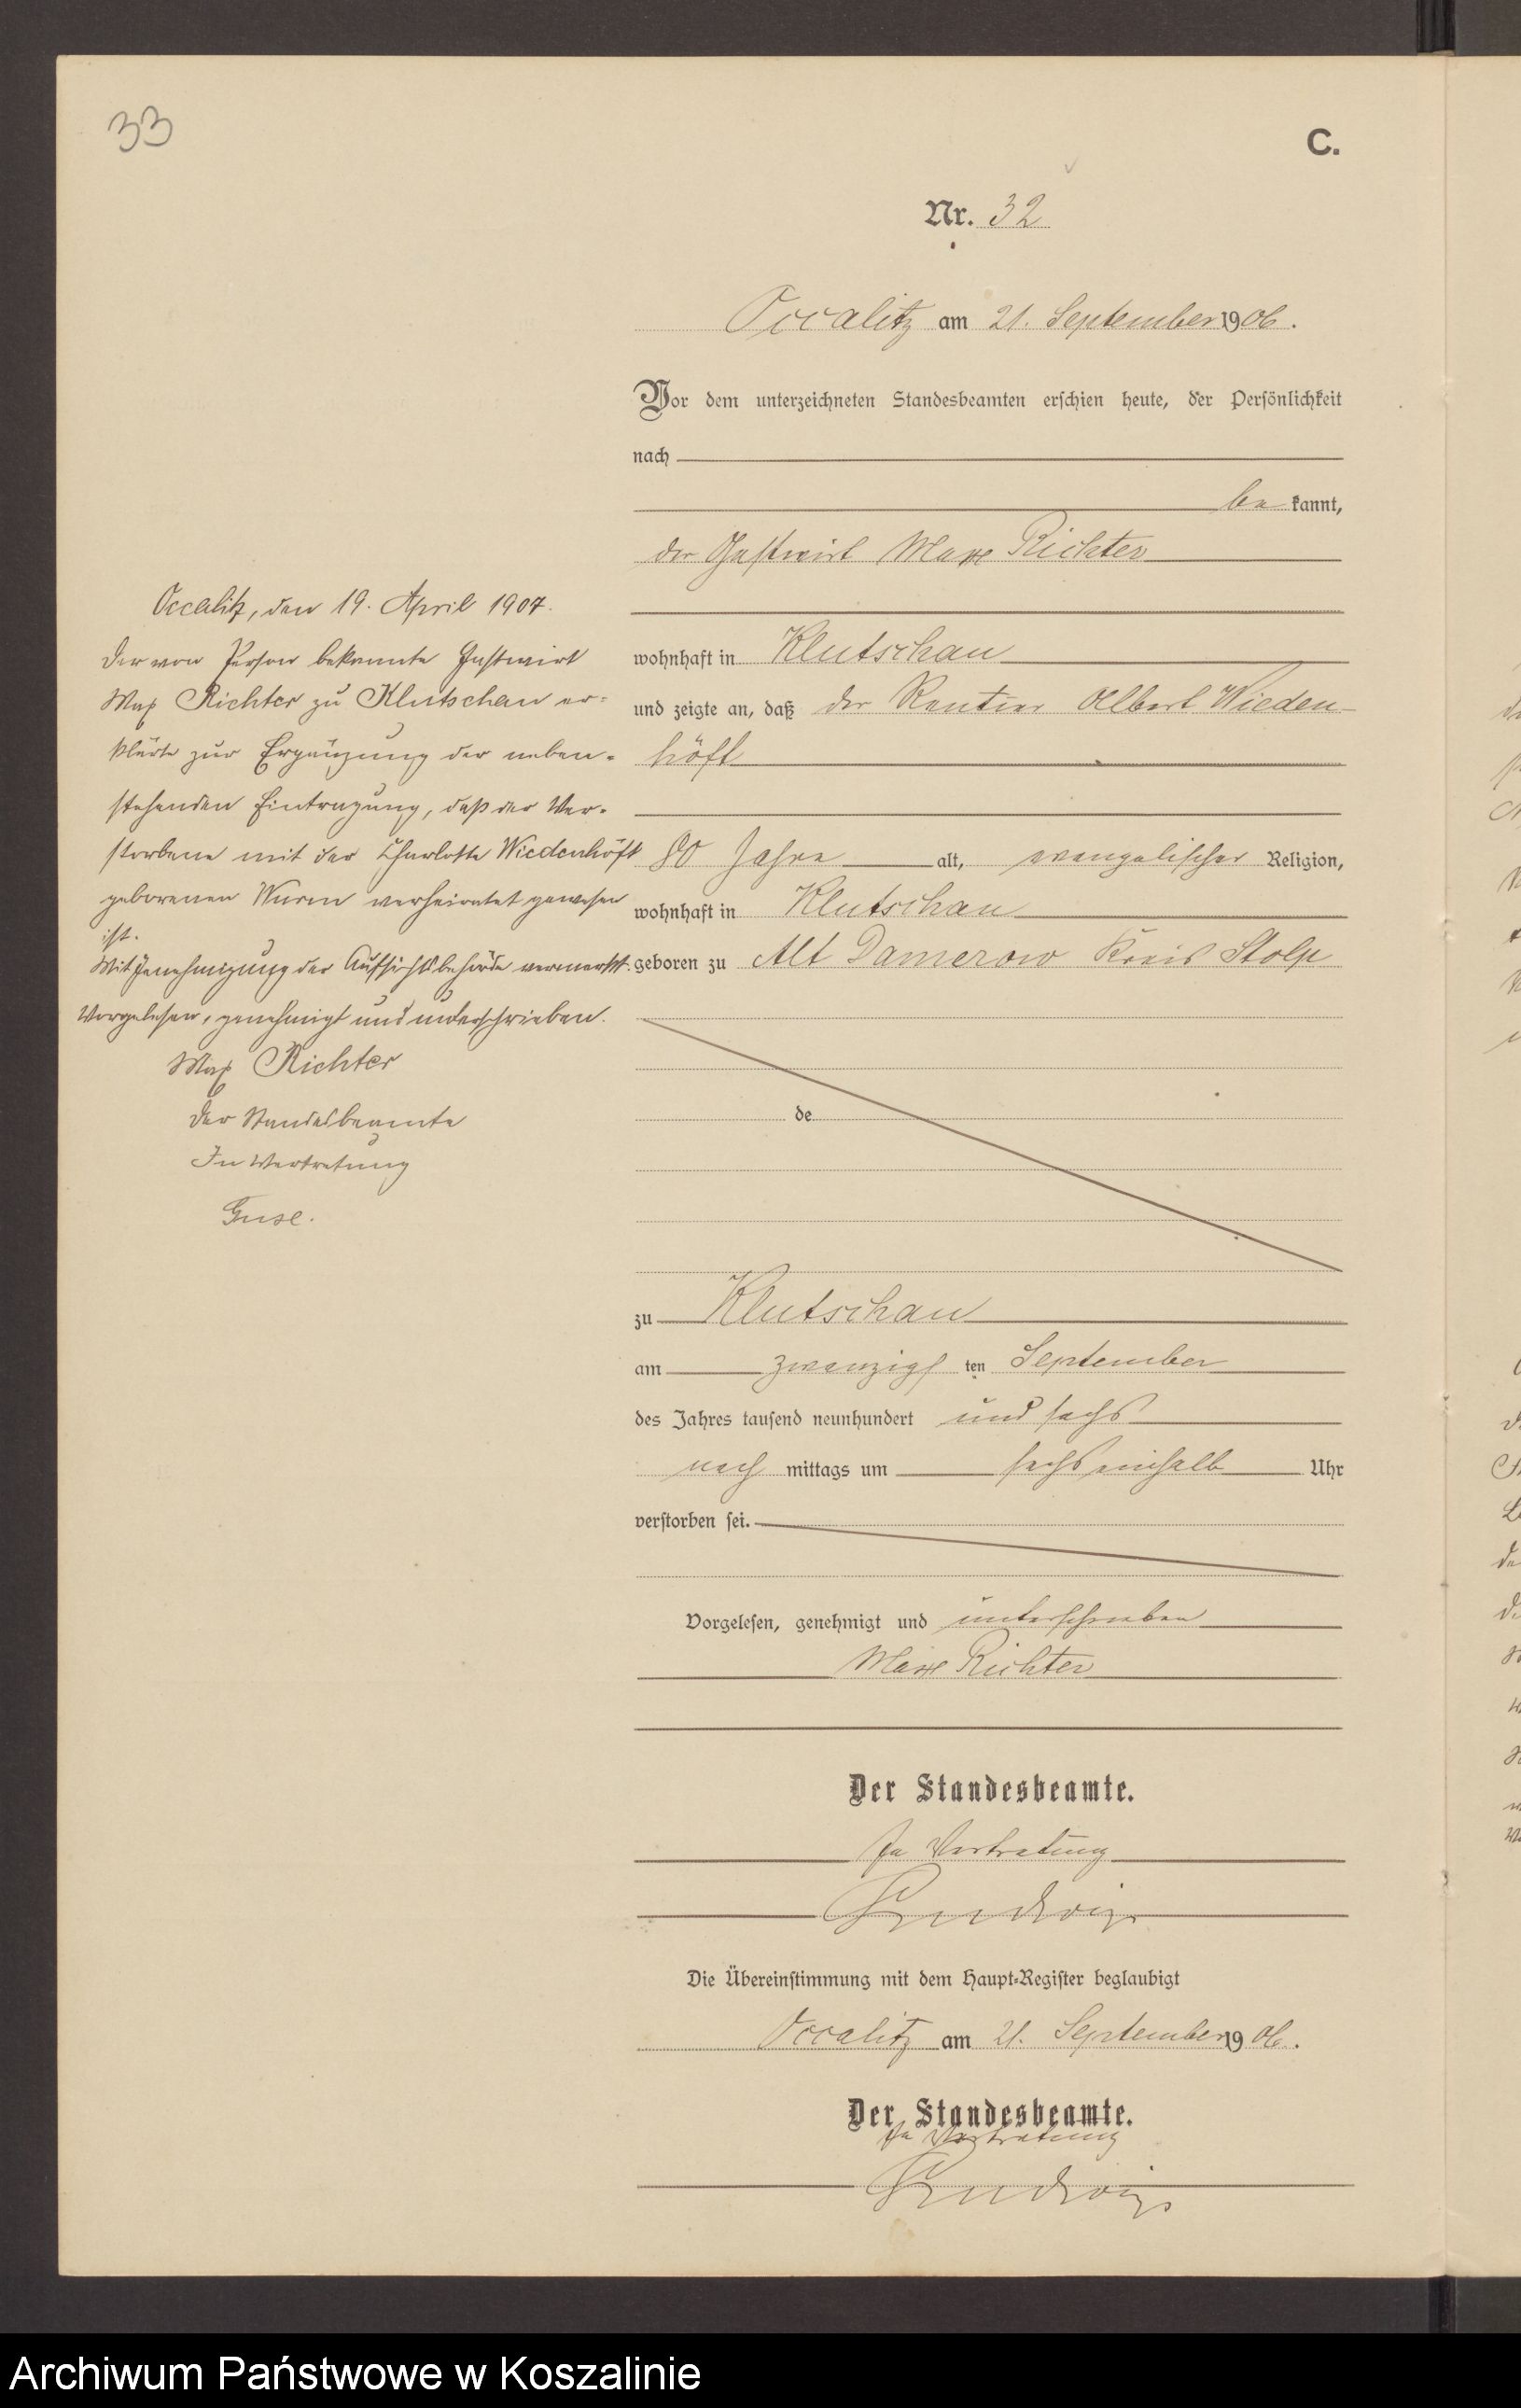 33
C.
Nr. 32
Occalitz am 21. September 1906.
Vor dem unterzeichneten Standesbeamten erschien heute, der Persönlichkeit
nach
be kannt,
der Gastwirt Max Richter
wohnhaft in Klutschau
und zeigte an, daß der Rentier Albert Wieden-
höft
80 Jahre alt, evangelischer Religion,
wohnhaft in Klutschau
geboren zu Alt Damerow Kreis Stolp
de
zu Klutschau
am zwanzigs ten September
des Jahres tausend neunhundert und sechs
nach mittags um sechs einhalb Uhr
verstorben sei.
Vorgelesen, genehmigt und unterschrieben
Max Richter
Der Standesbeamte.
In Vertretung
Die Übereinstimmung mit dem Haupt-Register beglaubigt
Occalitz am 21. September 1906.
Der Standesbeamte.
In Vertretung
Occalitz, den 19. April 1907.
Der von Person bekannte Gastwirt
Max Richter zu Klutschau er-
klärte zur Ergänzung der neben-
stehenden Eintragung, daß der Ver-
storbene mit der Charlotte Wiedenhöft
geborenen Wurm verheiratet gewesen
ist.
Mit Genehmigung der Aufsichtsbehörde vermerkt.
Vorgelesen, genehmigt und unterschrieben.
Max Richter
Der Standesbeamte
In Vertretung
Guse.
Archiwum Państwowe w Koszalinie